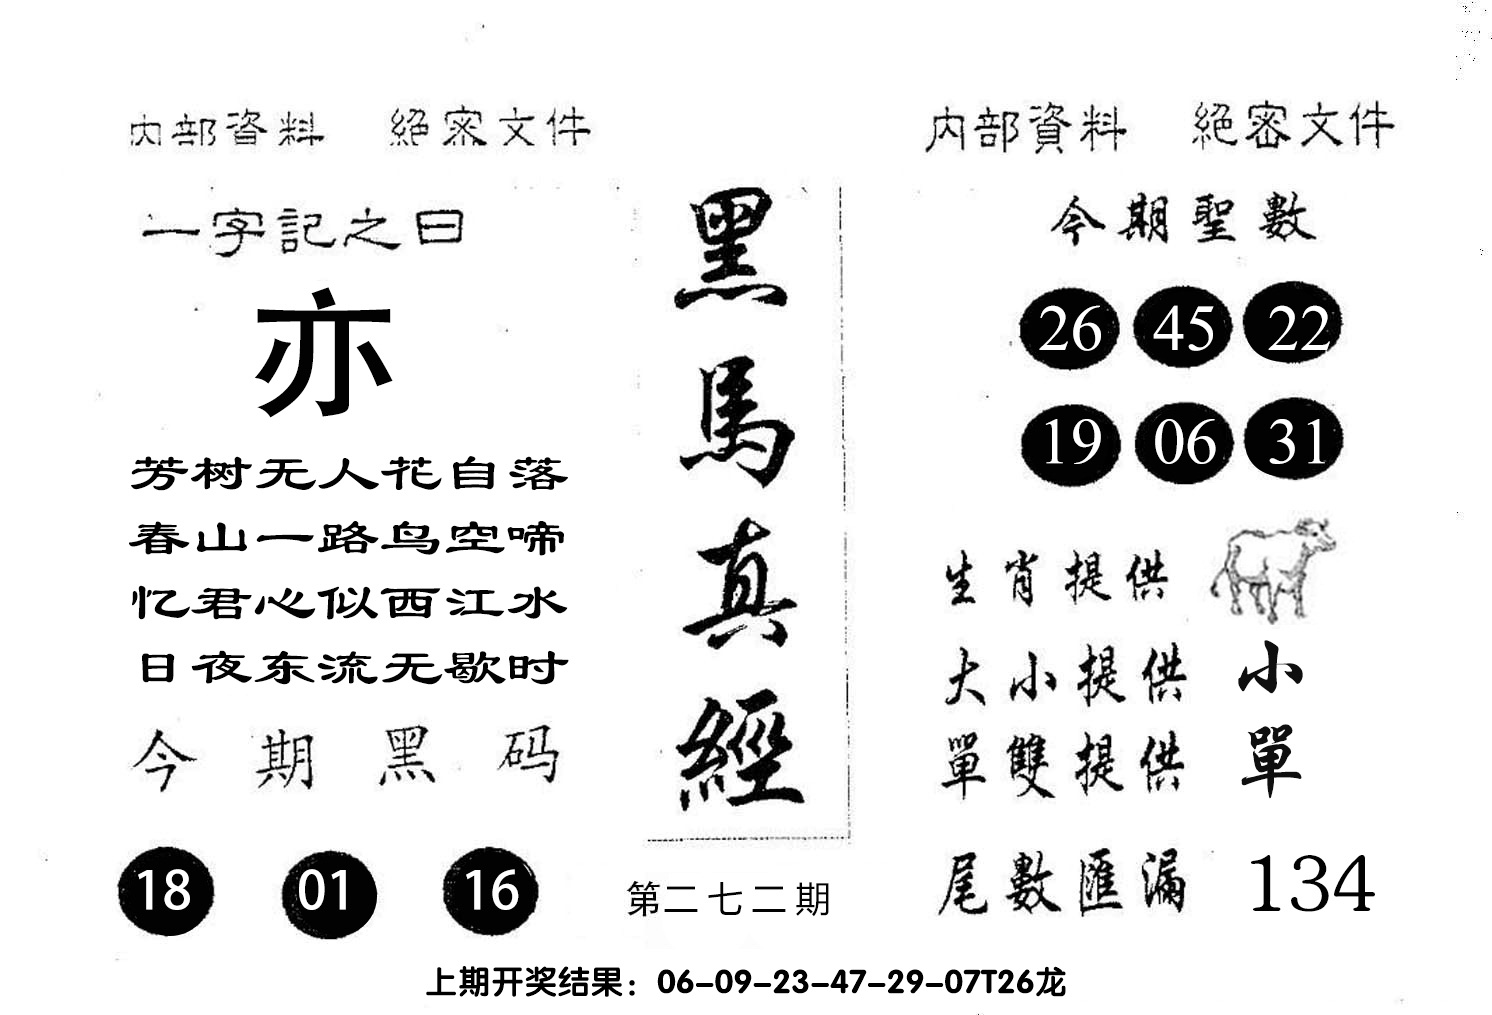 內部資料 絕密文件
一字記之曰
亦
芳树无人花自落
春山一路鸟空啼
忆君心似西江水
日夜东流无歇时
今期黑码
18 01 16
黑馬真經
第二七二期
內部資料 絕密文件
今期聖數
26 45 22
19 06 31
生肖提供
大小提供 小
單雙提供 單
尾數匯漏 134
上期开奖结果：06-09-23-47-29-07T26龙